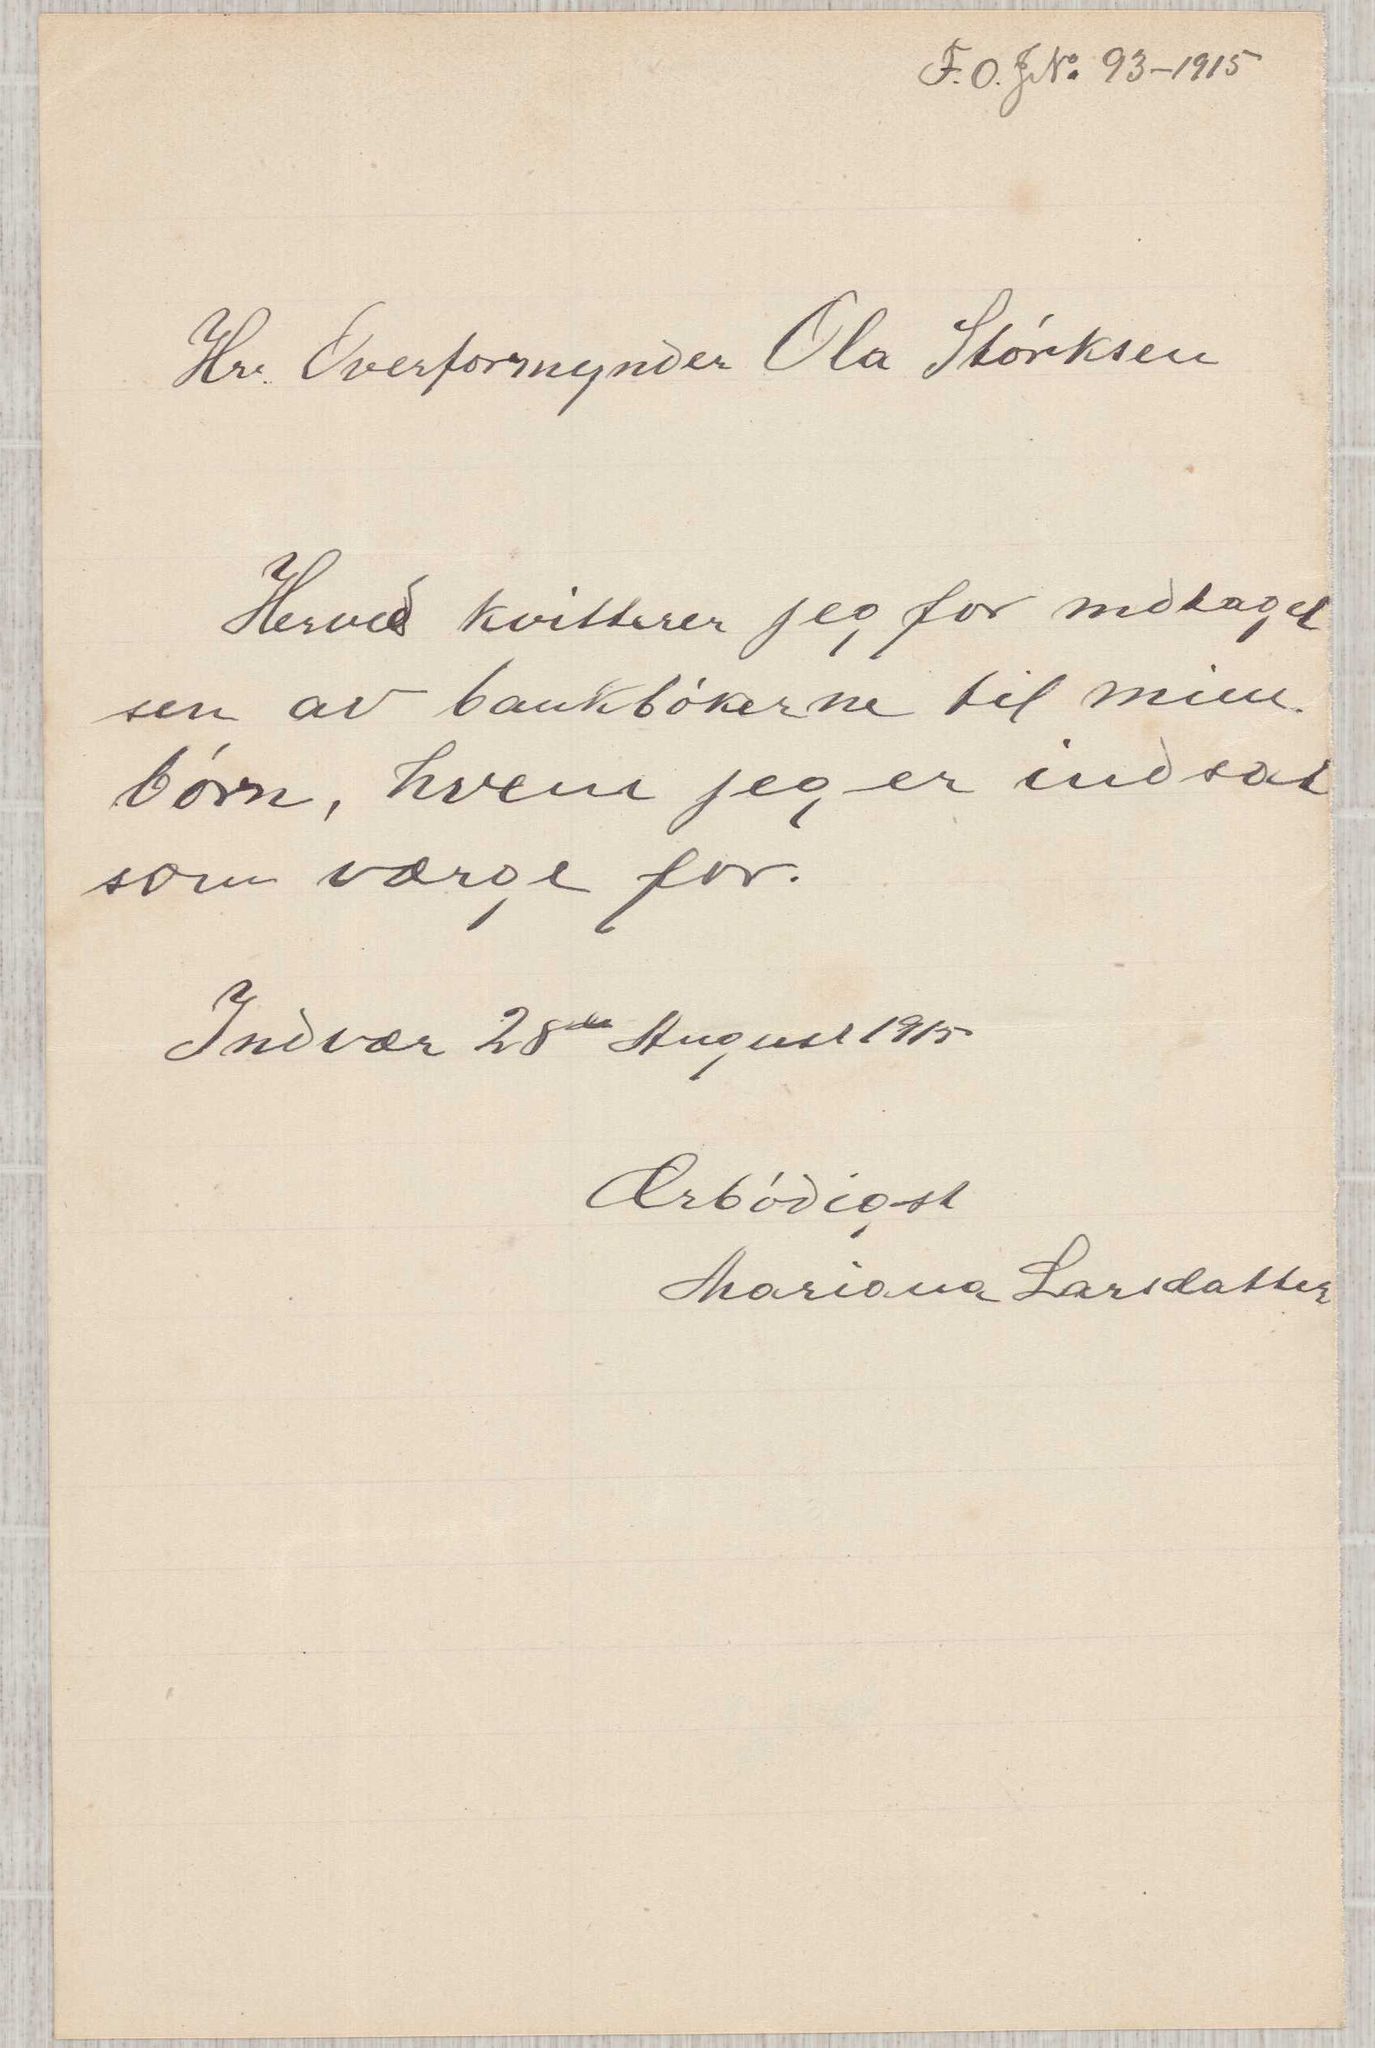 F.O.JNo. 93-1915
Hr. Overformynder Ola Störksen
Herved kvitterer jeg for mdtagel
sen av bankbökerne til mine
börn, hvem jeg er indsat
som værge for.
Indvær 28de August 1915
Ærbödigst
Mariana Larsdatter